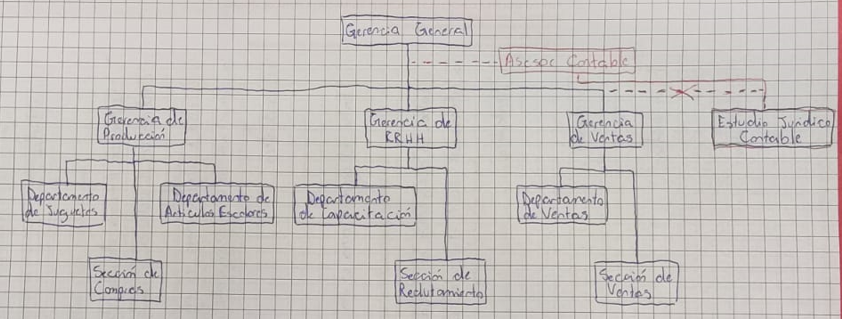 Gerencia General
Asesor Contable
Gerencia de
Producción
Gerencia de
RRHH
Gerencia
de Ventas
Estudio Jurídico
Contable
Departamento
de Juguetes
Departamento de
Artículos Escolares
Departamento
de Capacitación
Departamento
de Ventas
Sección de
Compras
Sección de
Reclutamiento
Sección de
Ventas